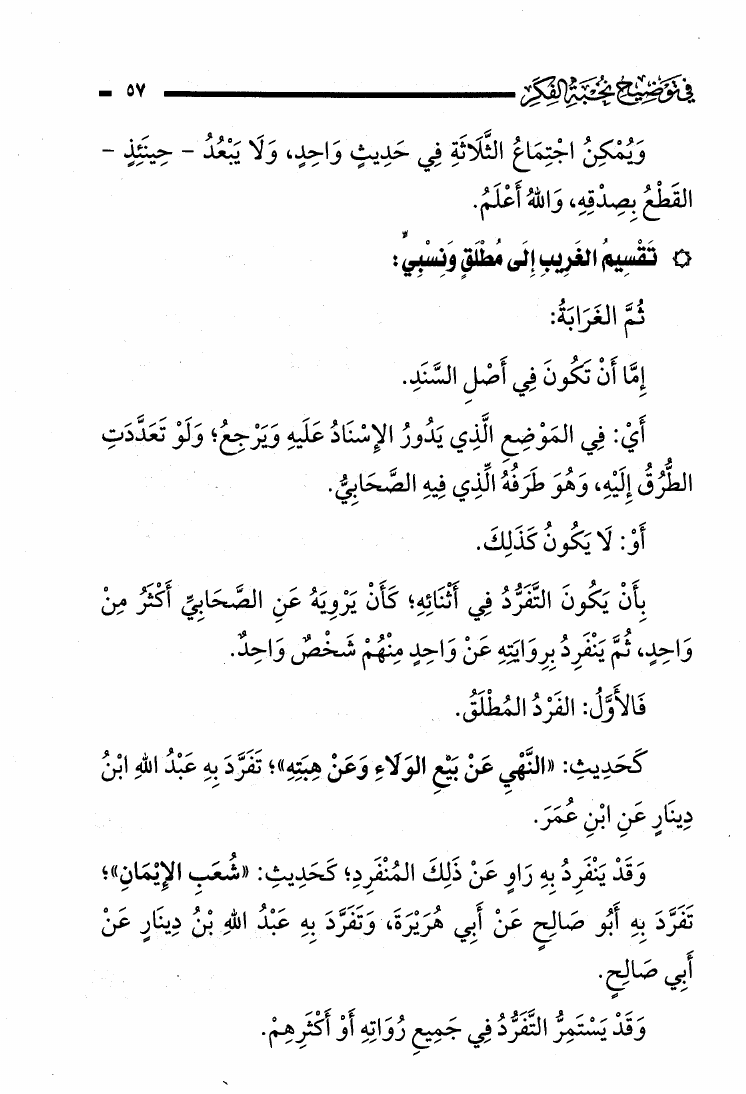 في تَوْضِيحِ نُخْبَةِ الفِكَر ٥٧
وَيُمْكِنُ اجْتِمَاعُ الثَّلَاثَةِ فِي حَدِيثٍ وَاحِدٍ، وَلَا يَبْعُدُ - حِينَئِذٍ -
القَطْعُ بِصِدْقِهِ، وَاللهُ أَعْلَمُ.
۞ تَقْسِيمُ الغَرِيبِ إِلَى مُطْلَقٍ وَنِسْبِيٍّ:
ثُمَّ الغَرَابَةُ:
إِمَّا أَنْ تَكُونَ فِي أَصْلِ السَّنَدِ.
أَيْ: فِي المَوْضِعِ الَّذِي يَدُورُ الإِسْنَادُ عَلَيهِ وَيَرْجِعُ؛ وَلَوْ تَعَدَّدَتِ
الطُّرُقُ إِلَيْهِ، وَهُوَ طَرَفُهُ الَّذِي فِيهِ الصَّحَابِيُّ.
أَوْ: لَا يَكُونُ كَذَلِكَ.
بِأَنْ يَكُونَ التَّفَرُّدُ فِي أَثْنَائِهِ؛ كَأَنْ يَرْوِيَهُ عَنِ الصَّحَابِيِّ أَكْثَرُ مِنْ
وَاحِدٍ، ثُمَّ يَنْفَرِدُ بِرِوَايَتِهِ عَنْ وَاحِدٍ مِنْهُمْ شَخْصٌ وَاحِدٌ.
فَالأَوَّلُ: الفَرْدُ المُطْلَقُ.
كَحَدِيثِ: «النَّهْيِ عَنْ بَيْعِ الوَلَاءِ وَعَنْ هِبَتِهِ»؛ تَفَرَّدَ بِهِ عَبْدُ اللهِ ابْنُ
دِينَارٍ عَنِ ابْنِ عُمَرَ.
وَقَدْ يَنْفَرِدُ بِهِ رَاوٍ عَنْ ذَلِكَ المُنْفَرِدِ؛ كَحَدِيثِ: «شُعَبِ الإِيْمَانِ»؛
تَفَرَّدَ بِهِ أَبُو صَالِحٍ عَنْ أَبِي هُرَيْرَةَ، وَتَفَرَّدَ بِهِ عَبْدُ اللهِ بْنُ دِينَارٍ عَنْ
أَبِي صَالِحٍ.
وَقَدْ يَسْتَمِرُّ التَّفَرُّدُ فِي جَمِيعِ رُوَاتِهِ أَوْ أَكْثَرِهِمْ.